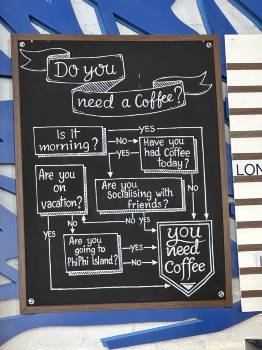 Do you
need a Coffee?
Is it
morning?
YES
NO
YES
Have you
had Coffee
today?
Are you
on
vacation?
Are you
Socialising with
friends?
NO
NO
YES
Are you
going to
PhiPhi Island?
YES
NO
YES
you
need
Coffee
LON